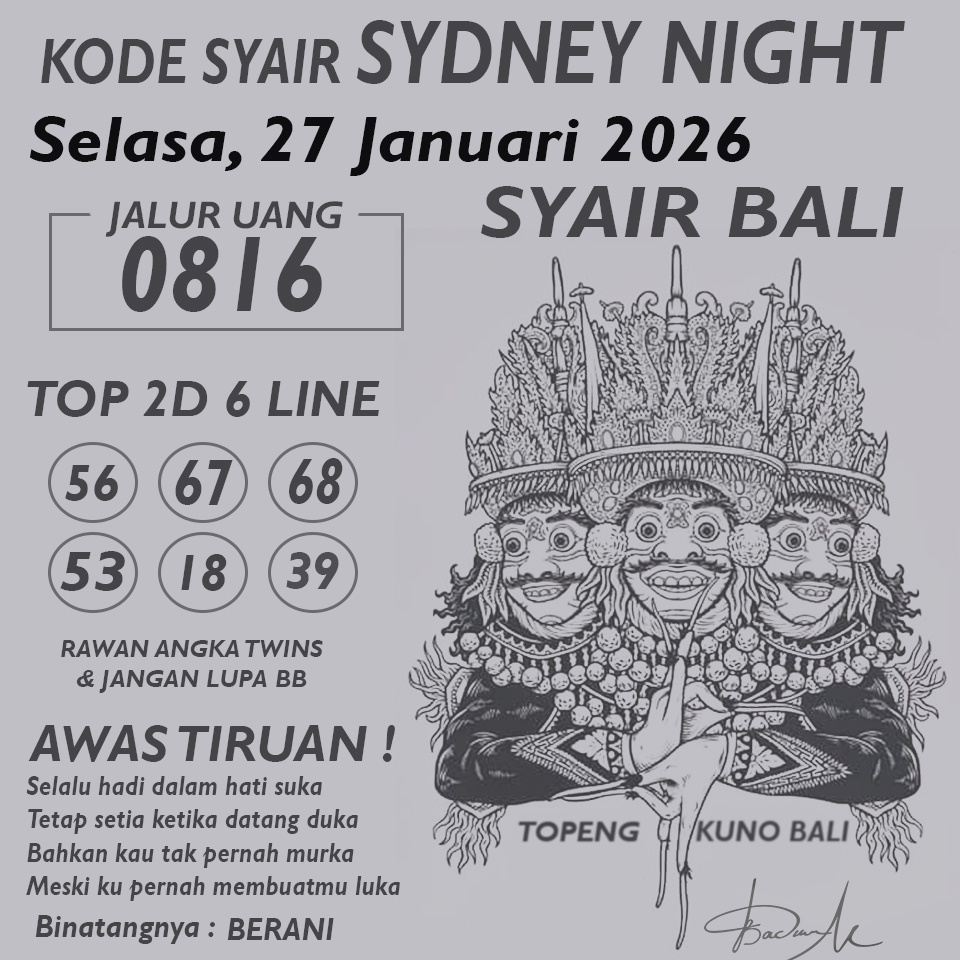 KODE SYAIR SYDNEY NIGHT
Selasa, 27 Januari 2026
SYAIR BALI
JALUR UANG
0816
TOP 2D 6 LINE
56 67 68
53 18 39
RAWAN ANGKA TWINS
& JANGAN LUPA BB
AWAS TIRUAN !
Selalu hadi dalam hati suka
Tetap setia ketika datang duka
Bahkan kau tak pernah murka
Meski ku pernah membuatmu luka
Binatangnya : BERANI
TOPENG KUNO BALI